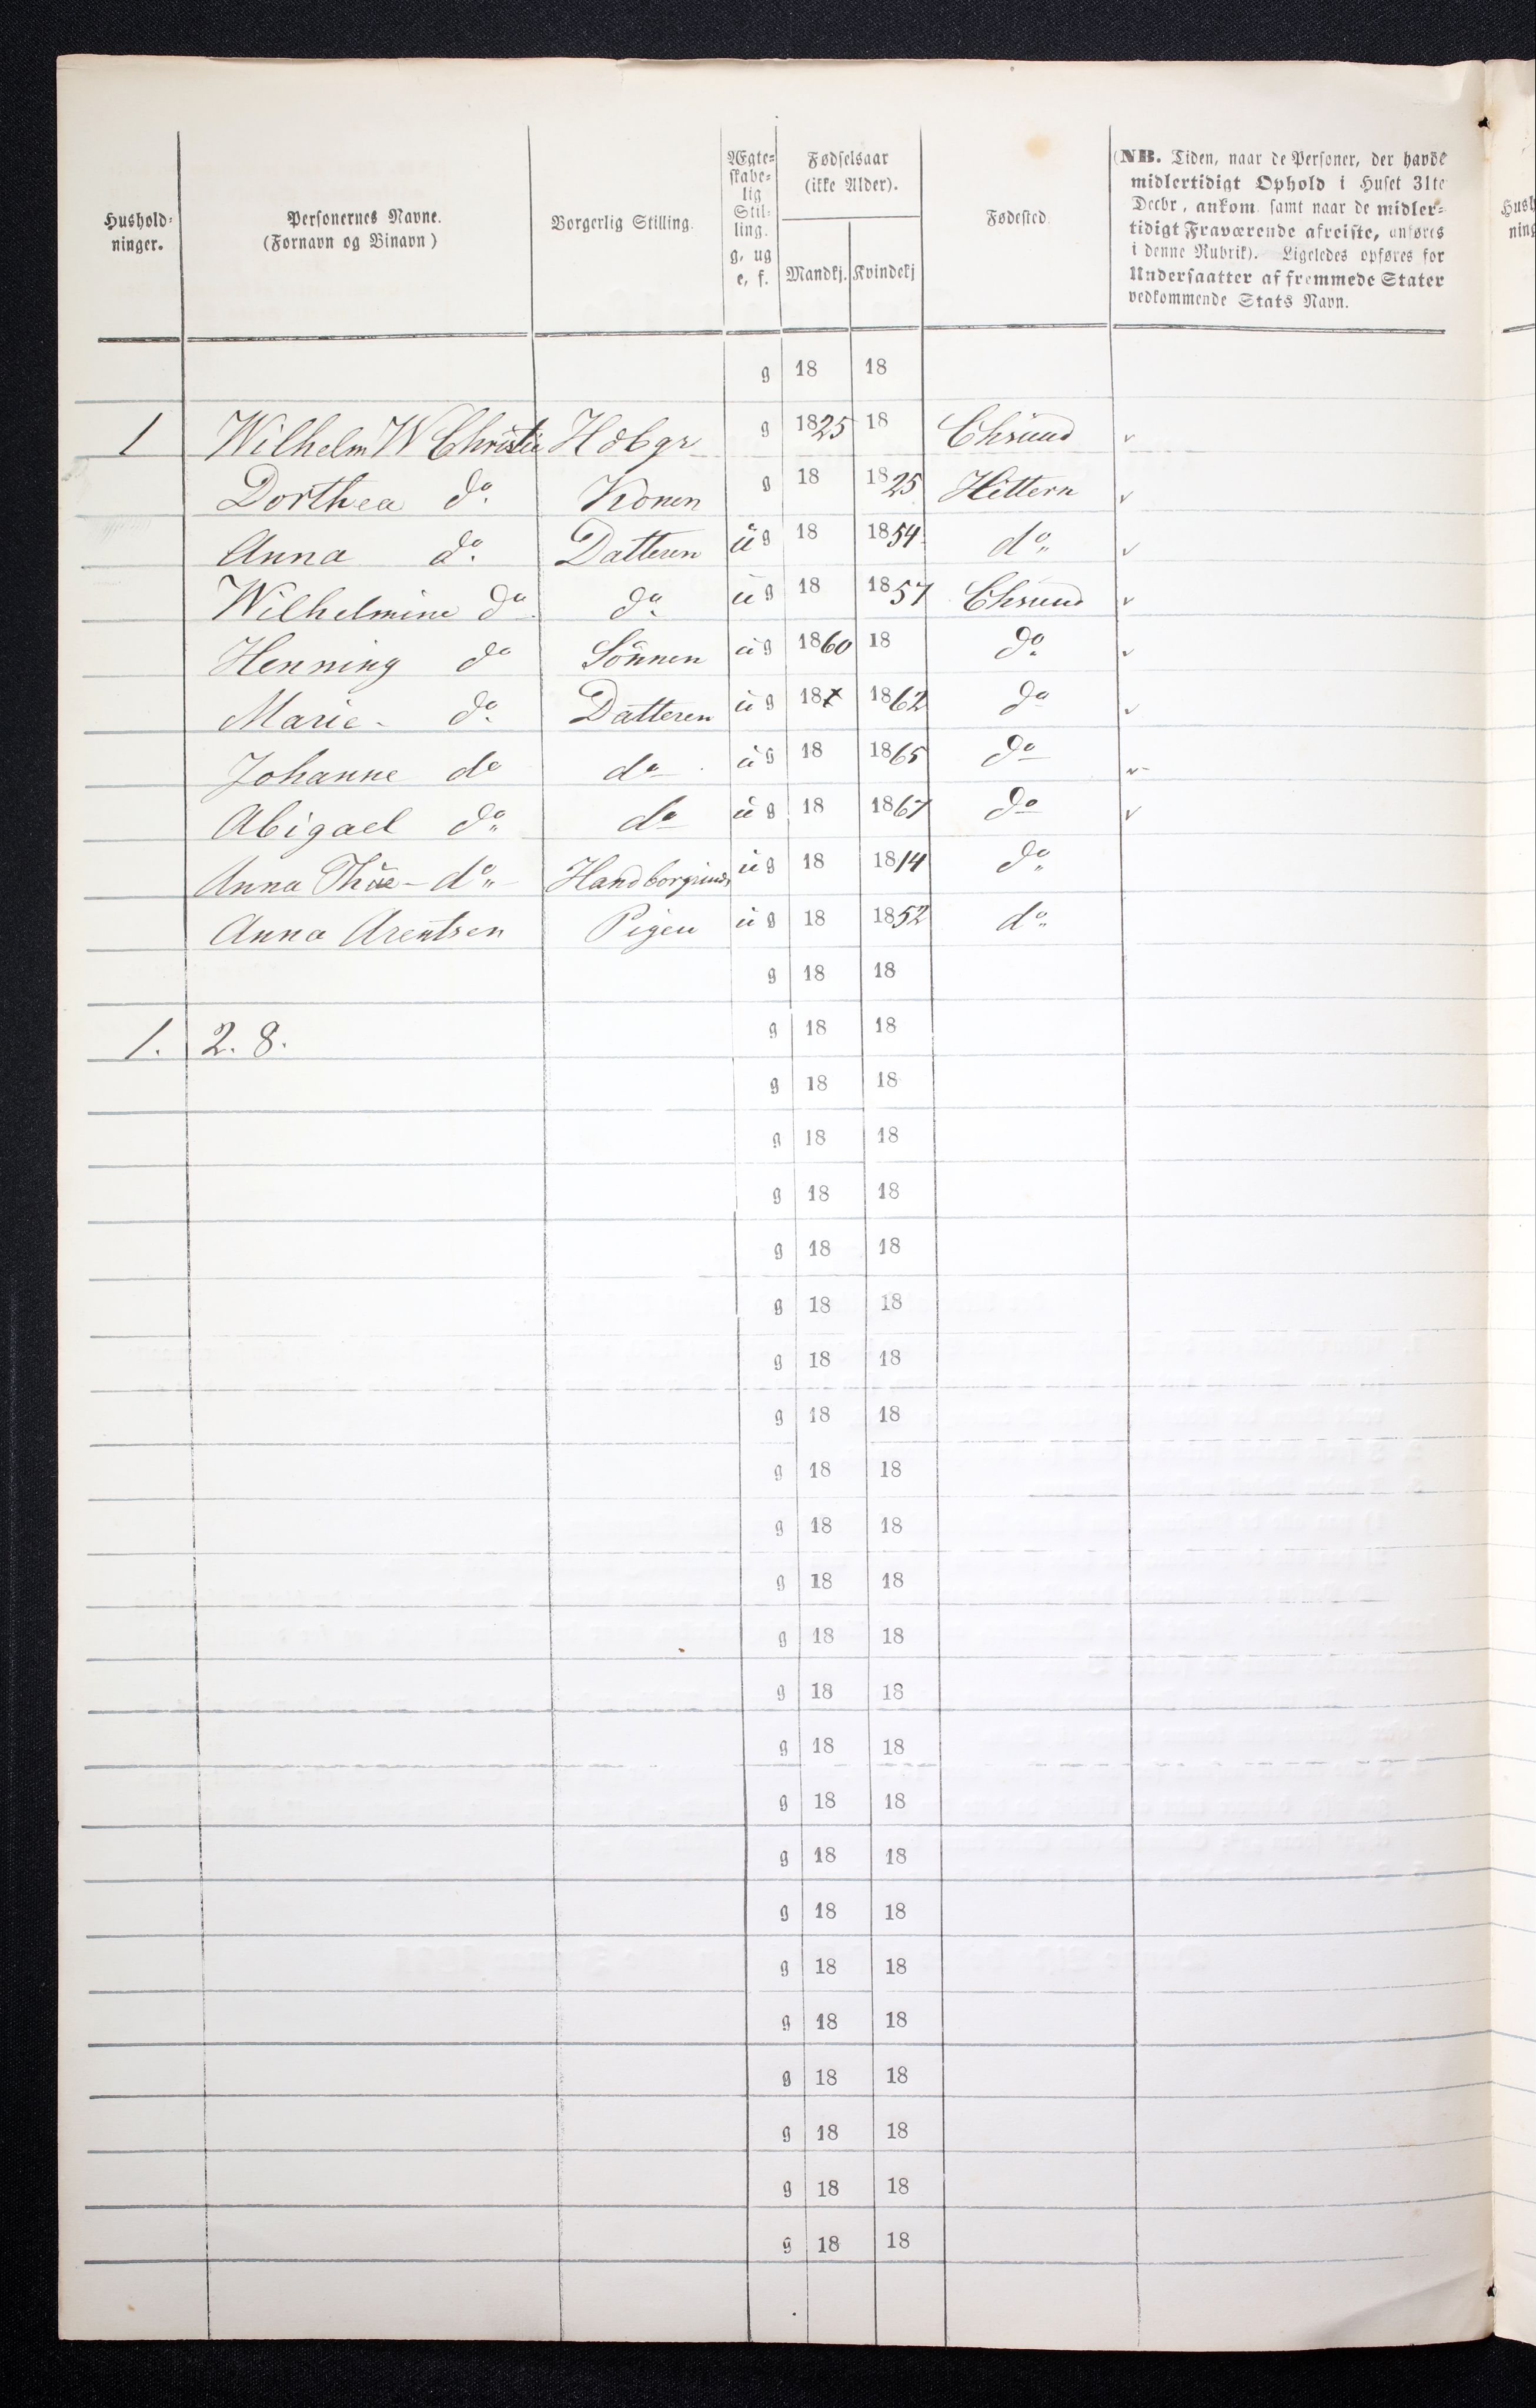 Hushold-
ninger.
Personernes Navne.
(Fornavn og Binavn)
Borgerlig Stilling.
Ægte-
skabe-
lig
Stil-
ling.
g, ug
e, f.
Fødselsaar
(ikke Alder).
Mandkj. Kvindekj
Fødested.
(NB. Tiden, naar de Personer, der havde
midlertidigt Ophold i Huset 31te
Decbr, ankom samt naar de midler-
tidigt Fraværende afreiste, anføres
i denne Rubrik). Ligeledes opføres for
Undersaatter af fremmede Stater
vedkommende Stats Navn.
g 18 18
1 Wilhelm W Christie Hdbgr g 1825 18 Chsund
Dorthea do. Konen g 18 1825 Hittern
Anna do. Datteren ug 18 1854 do„
Wilhelmine do do. ug 18 1857 Chsund
Henning do Sönnen ug 1860 18 do.
Marie - do. Datteren ug 18 1862 do
Johanne do do ug 18 1865 do
Abigael do„ do ug 18 1867 do
Anna - do„ ug 18 1814 do„
Anna Arentsen Pigen ug 18 1852 do„
g 18 18
1. 2. 8. g 18 18
g 18 18
g 18 18
g 18 18
g 18 18
g 18 18
g 18 18
g 18 18
g 18 18
g 18 18
g 18 18
g 18 18
g 18 18
g 18 18
g 18 18
g 18 18
g 18 18
g 18 18
g 18 18
g 18 18
g 18 18
g 18 18
g 18 18